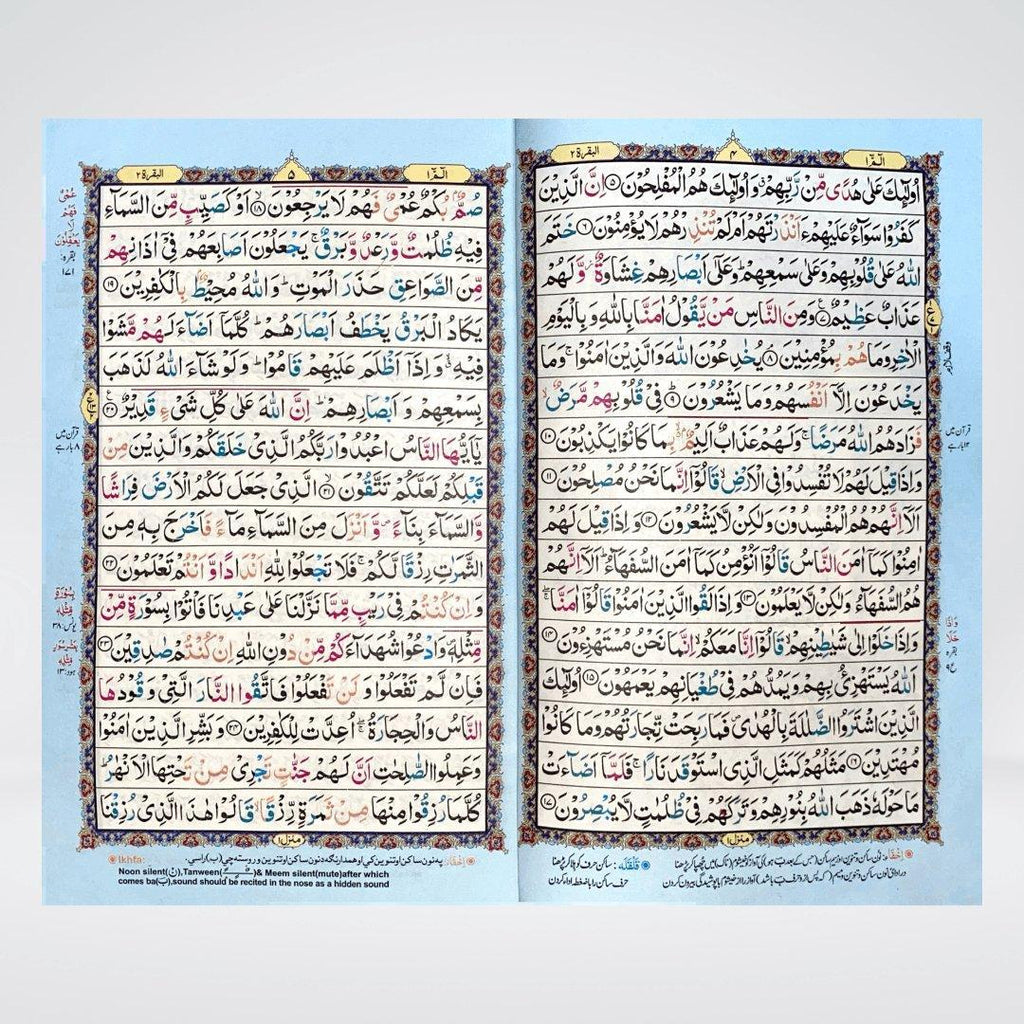 الٓمّٓ ١
٤
البقرة ٢
أُولٰٓئِكَ عَلٰى هُدًى مِّنْ رَّبِّهِمْ ۙ وَ أُولٰٓئِكَ هُمُ الْمُفْلِحُوْنَ ۝٥ اِنَّ الَّذِيْنَ
كَفَرُوْا سَوَآءٌ عَلَيْهِمْ ءَاَنْذَرْتَهُمْ اَمْ لَمْ تُنْذِرْهُمْ لَا يُؤْمِنُوْنَ ۝٦ خَتَمَ
اللّٰهُ عَلٰى قُلُوْبِهِمْ وَعَلٰى سَمْعِهِمْ ؕ وَعَلٰٓى اَبْصَارِهِمْ غِشَاوَةٌ ؗ وَّ لَهُمْ
عَذَابٌ عَظِيْمٌ ۝٧ وَمِنَ النَّاسِ مَنْ يَّقُوْلُ اٰمَنَّا بِاللّٰهِ وَ بِالْيَوْمِ
الْاٰخِرِ وَمَا هُمْ بِمُؤْمِنِيْنَ ۝٨ يُخٰدِعُوْنَ اللّٰهَ وَالَّذِيْنَ اٰمَنُوْا ۚ وَمَا
يَخْدَعُوْنَ اِلَّآ اَنْفُسَهُمْ وَمَا يَشْعُرُوْنَ ۝٩ فِيْ قُلُوْبِهِمْ مَّرَضٌ ۙ
فَزَادَهُمُ اللّٰهُ مَرَضًا ۚ وَلَهُمْ عَذَابٌ اَلِيْمٌۢ ۙ بِمَا كَانُوْا يَكْذِبُوْنَ ۝١٠
وَاِذَا قِيْلَ لَهُمْ لَا تُفْسِدُوْا فِى الْاَرْضِ ۙ قَالُوْٓا اِنَّمَا نَحْنُ مُصْلِحُوْنَ ۝١١
اَلَآ اِنَّهُمْ هُمُ الْمُفْسِدُوْنَ وَلٰكِنْ لَّا يَشْعُرُوْنَ ۝١٢ وَ اِذَا قِيْلَ لَهُمْ
اٰمِنُوْا كَمَآ اٰمَنَ النَّاسُ قَالُوْٓا اَنُؤْمِنُ كَمَآ اٰمَنَ السُّفَهَآءُ ؕ اَلَآ اِنَّهُمْ
هُمُ السُّفَهَآءُ وَلٰكِنْ لَّا يَعْلَمُوْنَ ۝١٣ وَ اِذَا لَقُوا الَّذِيْنَ اٰمَنُوْا قَالُوْٓا اٰمَنَّا ۖۚ
وَاِذَا خَلَوْا اِلٰى شَيٰطِيْنِهِمْ ۙ قَالُوْٓا اِنَّا مَعَكُمْ ۙ اِنَّمَا نَحْنُ مُسْتَهْزِءُوْنَ ۝١٤
اَللّٰهُ يَسْتَهْزِئُ بِهِمْ وَيَمُدُّهُمْ فِيْ طُغْيَانِهِمْ يَعْمَهُوْنَ ۝١٥ أُولٰٓئِكَ
الَّذِيْنَ اشْتَرَوُا الضَّلٰلَةَ بِالْهُدٰى ۪ فَمَا رَبِحَتْ تِّجَارَتُهُمْ وَمَا كَانُوْا
مُهْتَدِيْنَ ۝١٦ مَثَلُهُمْ كَمَثَلِ الَّذِى اسْتَوْقَدَ نَارًا ۚ فَلَمَّآ اَضَآءَتْ
مَا حَوْلَهٗ ذَهَبَ اللّٰهُ بِنُوْرِهِمْ وَ تَرَكَهُمْ فِيْ ظُلُمٰتٍ لَّا يُبْصِرُوْنَ ۝١٧
منزل ١
قرآن میں
وَاِذَا
خَلَا
بقره
ع٩
قَلْقَلَہ: ساکن حرف کو ہلا کر پڑھنا
الٓمّٓ ١
٥
البقرة ٢
صُمٌّۢ بُكْمٌ عُمْيٌ فَهُمْ لَا يَرْجِعُوْنَ ۝١٨ اَوْ كَصَيِّبٍ مِّنَ السَّمَآءِ
فِيْهِ ظُلُمٰتٌ وَّ رَعْدٌ وَّ بَرْقٌ ۚ يَجْعَلُوْنَ اَصَابِعَهُمْ فِيْٓ اٰذَانِهِمْ
مِّنَ الصَّوَاعِقِ حَذَرَ الْمَوْتِ ؕ وَ اللّٰهُ مُحِيْطٌۢ بِالْكٰفِرِيْنَ ۝١٩
يَكَادُ الْبَرْقُ يَخْطَفُ اَبْصَارَهُمْ ؕ كُلَّمَآ اَضَآءَ لَهُمْ مَّشَوْا
فِيْهِ ۙ وَ اِذَآ اَظْلَمَ عَلَيْهِمْ قَامُوْا ؕ وَ لَوْ شَآءَ اللّٰهُ لَذَهَبَ
بِسَمْعِهِمْ وَ اَبْصَارِهِمْ ؕ اِنَّ اللّٰهَ عَلٰى كُلِّ شَيْءٍ قَدِيْرٌ ۝٢٠
يٰٓاَيُّهَا النَّاسُ اعْبُدُوْا رَبَّكُمُ الَّذِيْ خَلَقَكُمْ وَالَّذِيْنَ مِنْ
قَبْلِكُمْ لَعَلَّكُمْ تَتَّقُوْنَ ۝٢١ الَّذِيْ جَعَلَ لَكُمُ الْاَرْضَ فِرَاشًا
وَّ السَّمَآءَ بِنَآءً ۪ وَّ اَنْزَلَ مِنَ السَّمَآءِ مَآءً فَاَخْرَجَ بِهٖ مِنَ
الثَّمَرٰتِ رِزْقًا لَّكُمْ ۚ فَلَا تَجْعَلُوْا لِلّٰهِ اَنْدَادًا وَّ اَنْتُمْ تَعْلَمُوْنَ ۝٢٢
وَ اِنْ كُنْتُمْ فِيْ رَيْبٍ مِّمَّا نَزَّلْنَا عَلٰى عَبْدِنَا فَاْتُوْا بِسُوْرَةٍ مِّنْ
مِّثْلِهٖ ۪ وَ ادْعُوْا شُهَدَآءَكُمْ مِّنْ دُوْنِ اللّٰهِ اِنْ كُنْتُمْ صٰدِقِيْنَ ۝٢٣
فَاِنْ لَّمْ تَفْعَلُوْا وَ لَنْ تَفْعَلُوْا فَاتَّقُوا النَّارَ الَّتِيْ وَ قُوْدُهَا
النَّاسُ وَ الْحِجَارَةُ ۖۚ اُعِدَّتْ لِلْكٰفِرِيْنَ ۝٢٤ وَ بَشِّرِ الَّذِيْنَ اٰمَنُوْا
وَعَمِلُوا الصّٰلِحٰتِ اَنَّ لَهُمْ جَنّٰتٍ تَجْرِيْ مِنْ تَحْتِهَا الْاَنْهٰرُ ؕ
كُلَّمَا رُزِقُوْا مِنْهَا مِنْ ثَمَرَةٍ رِّزْقًا ۙ قَالُوْا هٰذَا الَّذِيْ رُزِقْنَا
منزل ١
عُمْيٌ
فَهُمْ
لَا
يَعْقِلُوْنَ
بقره:
١٧١
قرآن میں
٨ بار ہے
بِسُوْرَةٍ
مِّثْلِهٖ
یونس: ٣٨
بِعَشْرِ سُوَرٍ
مِّثْلِهٖ
ھود: ١٣
Ikhfa:
Noon silent(نْ),Tanween( ـًـٍـٌ )& Meem silent(mute)after which
comes ba(ب),sound should be recited in the nose as a hidden sound